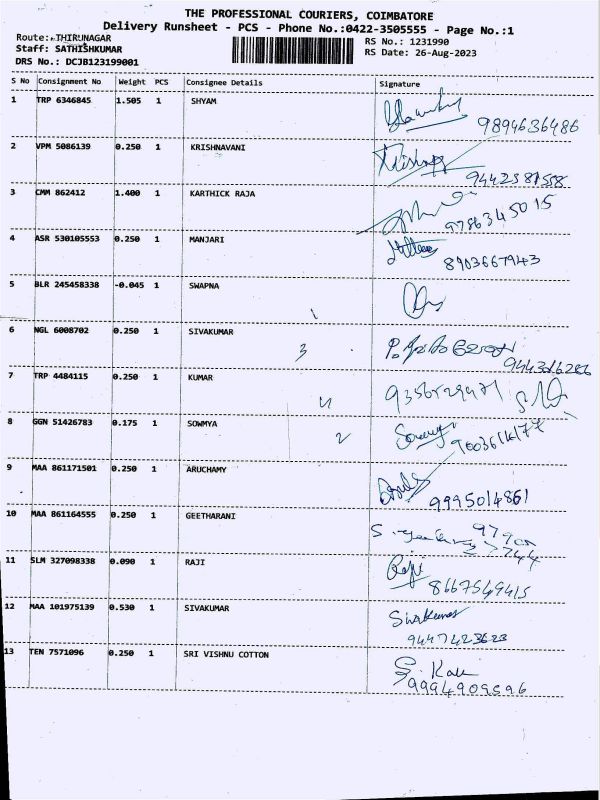 THE PROFESSIONAL COURIERS, COIMBATORE
Delivery Runsheet - PCS - Phone No.:0422-3505555 - Page No.:1
Route: THIRUNAGAR
RS No.: 1231990
Staff: SATHISHKUMAR
RS Date: 26-Aug-2023
DRS No.: DCJB123199001
S No Consignment No Weight PCS Consignee Details Signature
1 TRP 6346845 1.505 1 SHYAM
9894636486
2 VPM 5086139 0.250 1 KRISHNAVANI
3 CMM 862412 1.400 1 KARTHICK RAJA
9786345015
4 ASR 530105553 0.250 1 MANJARI
8903667943
5 BLR 245458338 -0.045 1 SWAPNA
6 NGL 6008702 0.250 1 SIVAKUMAR
3
7 TRP 4484115 0.250 1 KUMAR
8 GGN 51426783 0.175 1 SOWMYA
2
9 MAA 861171501 0.250 1 ARUCHAMY
9995014861
10 MAA 861164555 0.250 1 GEETHARANI
11 SLM 327098338 0.090 1 RAJI
Raji
8667549415
12 MAA 101975139 0.530 1 SIVAKUMAR
Sivakumar
9447423623
13 TEN 7571096 0.250 1 SRI VISHNU COTTON
9994909596